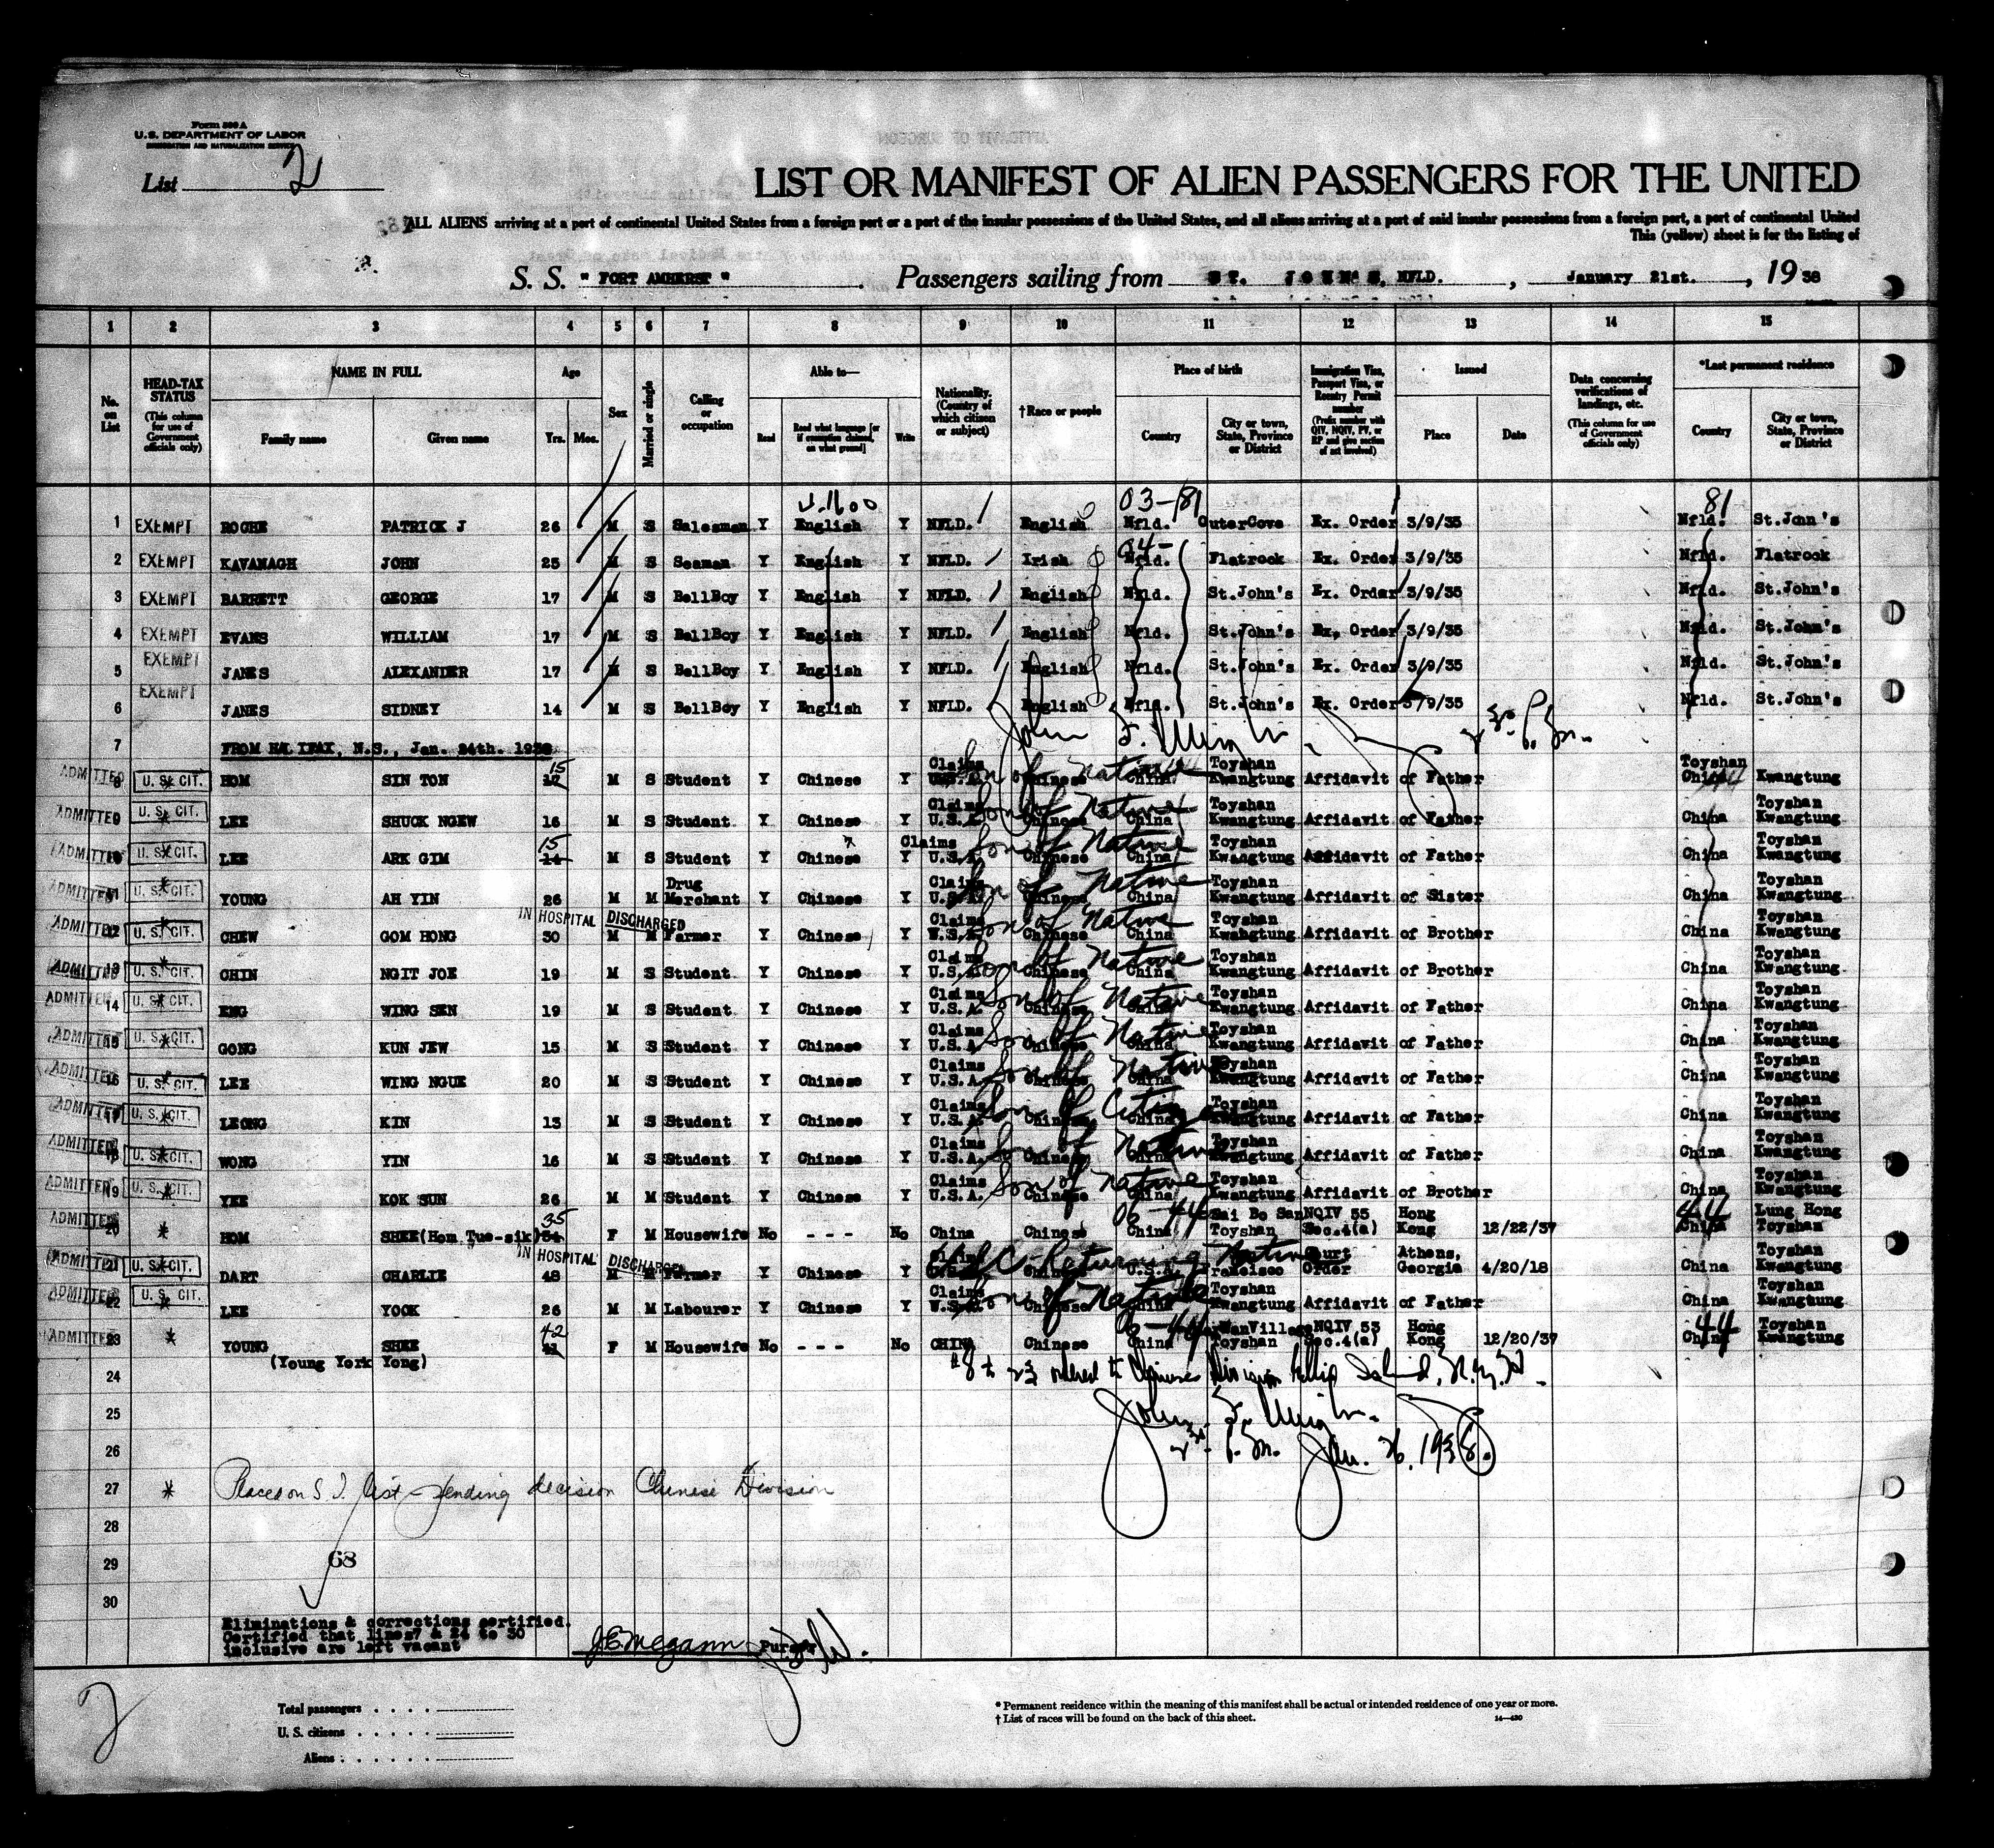 Form 500 A
U.S. DEPARTMENT OF LABOR
IMMIGRATION AND NATURALIZATION SERVICE
List 2
LIST OR MANIFEST OF ALIEN PASSENGERS FOR THE UNITED
ALL ALIENS arriving at a port of continental United States from a foreign port or a port of the insular possessions of the United States, and all aliens arriving at a port of said insular possessions from a foreign port, a port of continental United
This (yellow) sheet is for the listing of
S. S. "FORT AMHERST" Passengers sailing from ST. JOHN'S, NFLD., January 21st., 1938
1 2 3 4 5 6 7 8 9 10 11 12 13 14 15
No. on List
HEAD-TAX STATUS (This column for use of Government officials only)
NAME IN FULL Family name Given name
Age Yrs. Mos.
Sex
Married or single
Calling or occupation
Able to— Read Read what language [or if exemption claimed, on what ground] Write
Nationality. (Country of which citizen or subject)
†Race or people
Place of birth Country City or town, State, Province or District
Immigration Visa, Passport Visa, or Reentry Permit number (Prefix number with QIV, NQIV, PV, or RP and give section of act involved)
Issued Place Date
Data concerning verifications of landings, etc. (This column for use of Government officials only)
*Last permanent residence Country City or town, State, Province or District
03-81 81
1 EXEMPT ROCHE PATRICK J 26 M S Salesman Y English Y NFLD. English Nfld. OuterCove Ex. Order 3/9/35 Nfld. St.John's
2 EXEMPT KAVANAGH JOHN 25 M S Seaman Y English Y NFLD. Irish Nfld. Flatrock Ex. Order 3/9/35 Nfld. Flatrock
3 EXEMPT BARRETT GEORGE 17 M S BellBoy Y English Y NFLD. English Nfld. St.John's Ex. Order 3/9/35 Nfld. St.John's
4 EXEMPT EVANS WILLIAM 17 M S BellBoy Y English Y NFLD. English Nfld. St.John's Ex. Order 3/9/35 Nfld. St.John's
5 EXEMPT JANES ALEXANDER 17 M S BellBoy Y English Y NFLD. English Nfld. St.John's Ex. Order 3/9/35 Nfld. St.John's
6 EXEMPT JANES SIDNEY 14 M S BellBoy Y English Y NFLD. English Nfld. St.John's Ex. Order 3/9/35 Nfld. St.John's
7 FROM HALIFAX, N.S., Jan. 24th. 1938
8 ADMITTED U. S. CIT. HOM SIN TON 15 M S Student Y Chinese Y Claims U.S.A. Son of Native Chinese China Toyshan Kwangtung Affidavit of Father Toyshan China Kwangtung
9 ADMITTED U. S. CIT. LEE SHUCK NGEW 16 M S Student Y Chinese Y Claims U.S.A. Son of Native Chinese China Toyshan Kwangtung Affidavit of Father China Toyshan Kwangtung
10 ADMITTED U. S. CIT. LEE ARK GIM 15 14 M S Student Y Chinese Y Claims U.S.A. Son of Native Chinese China Toyshan Kwangtung Affidavit of Father China Toyshan Kwangtung
11 ADMITTED U. S. CIT. YOUNG AH YIN 26 M M Drug Merchant Y Chinese Y Claims U.S.A. Son of Native Chinese China Toyshan Kwangtung Affidavit of Sister China Toyshan Kwangtung
IN HOSPITAL DISCHARGED
12 ADMITTED U. S. CIT. CHEW GOM HONG 30 M M Farmer Y Chinese Y Claims U.S.A. Son of Native Chinese China Toyshan Kwangtung Affidavit of Brother China Toyshan Kwangtung
13 ADMITTED U. S. CIT. CHIN NGIT JOE 19 M S Student Y Chinese Y Claims U.S.A. Son of Native Chinese China Toyshan Kwangtung Affidavit of Brother China Toyshan Kwangtung
14 ADMITTED U. S. CIT. ENG WING SEN 19 M S Student Y Chinese Y Claims U.S.A. Son of Native Chinese China Toyshan Kwangtung Affidavit of Father China Toyshan Kwangtung
15 ADMITTED U. S. CIT. GONG KUN JEW 15 M S Student Y Chinese Y Claims U.S.A. Son of Native Chinese China Toyshan Kwangtung Affidavit of Father China Toyshan Kwangtung
16 ADMITTED U. S. CIT. LEE WING NGUE 20 M S Student Y Chinese Y Claims U.S.A. Son of Native Chinese China Toyshan Kwangtung Affidavit of Father China Toyshan Kwangtung
17 ADMITTED U. S. CIT. LEONG KIN 13 M S Student Y Chinese Y Claims U.S.A. Son of Citizen Chinese China Toyshan Kwangtung Affidavit of Father China Toyshan Kwangtung
18 ADMITTED U. S. CIT. WONG YIN 16 M S Student Y Chinese Y Claims U.S.A. Son of Native Chinese China Toyshan Kwangtung Affidavit of Father China Toyshan Kwangtung
19 ADMITTED U. S. CIT. YEE KOK SUN 26 M M Student Y Chinese Y Claims U.S.A. Son of Native Chinese China Toyshan Kwangtung Affidavit of Brother China Toyshan Kwangtung
20 ADMITTED * HOM SHEE (Hom Tue-sik) 35 34 F M Housewife No - - - No China Chinese China 06-44 Sai Bo San Toyshan NQIV 55 Sec.4(a) Hong Kong 12/22/37 44 China Lung Hong Toyshan
IN HOSPITAL DISCHARGED
21 ADMITTED U. S. CIT. DART CHARLIE 48 M M Farmer Y Chinese Y USC Returning Native Chinese U.S.A. Francisco Court Order Athens, Georgia 4/20/18 China Toyshan Kwangtung
22 ADMITTED U. S. CIT. LEE YOOK 26 M M Labourer Y Chinese Y Claims U.S.A. Son of Native Chinese China Toyshan Kwangtung Affidavit of Father China Toyshan Kwangtung
23 ADMITTED * YOUNG SHEE 42 41 F M Housewife No - - - No CHINA Chinese China Village Toyshan NQIV 53 Sec.4(a) Hong Kong 12/20/37 44 China Toyshan Kwangtung
(Young York Yong)
24 #8 to 23 ordered to Chinese Division Ellis Island, N.Y.H.
25
26 Jan. 26, 1938.
27 * Placed on S. I. list pending decision Chinese Division
28
29 68
30
Eliminations & corrections certified.
Certified that lines7 & 24 to 30
inclusive are left vacant
J E Megann Purser
2
Total passengers
U. S. citizens
Aliens
* Permanent residence within the meaning of this manifest shall be actual or intended residence of one year or more.
† List of races will be found on the back of this sheet.
14—430